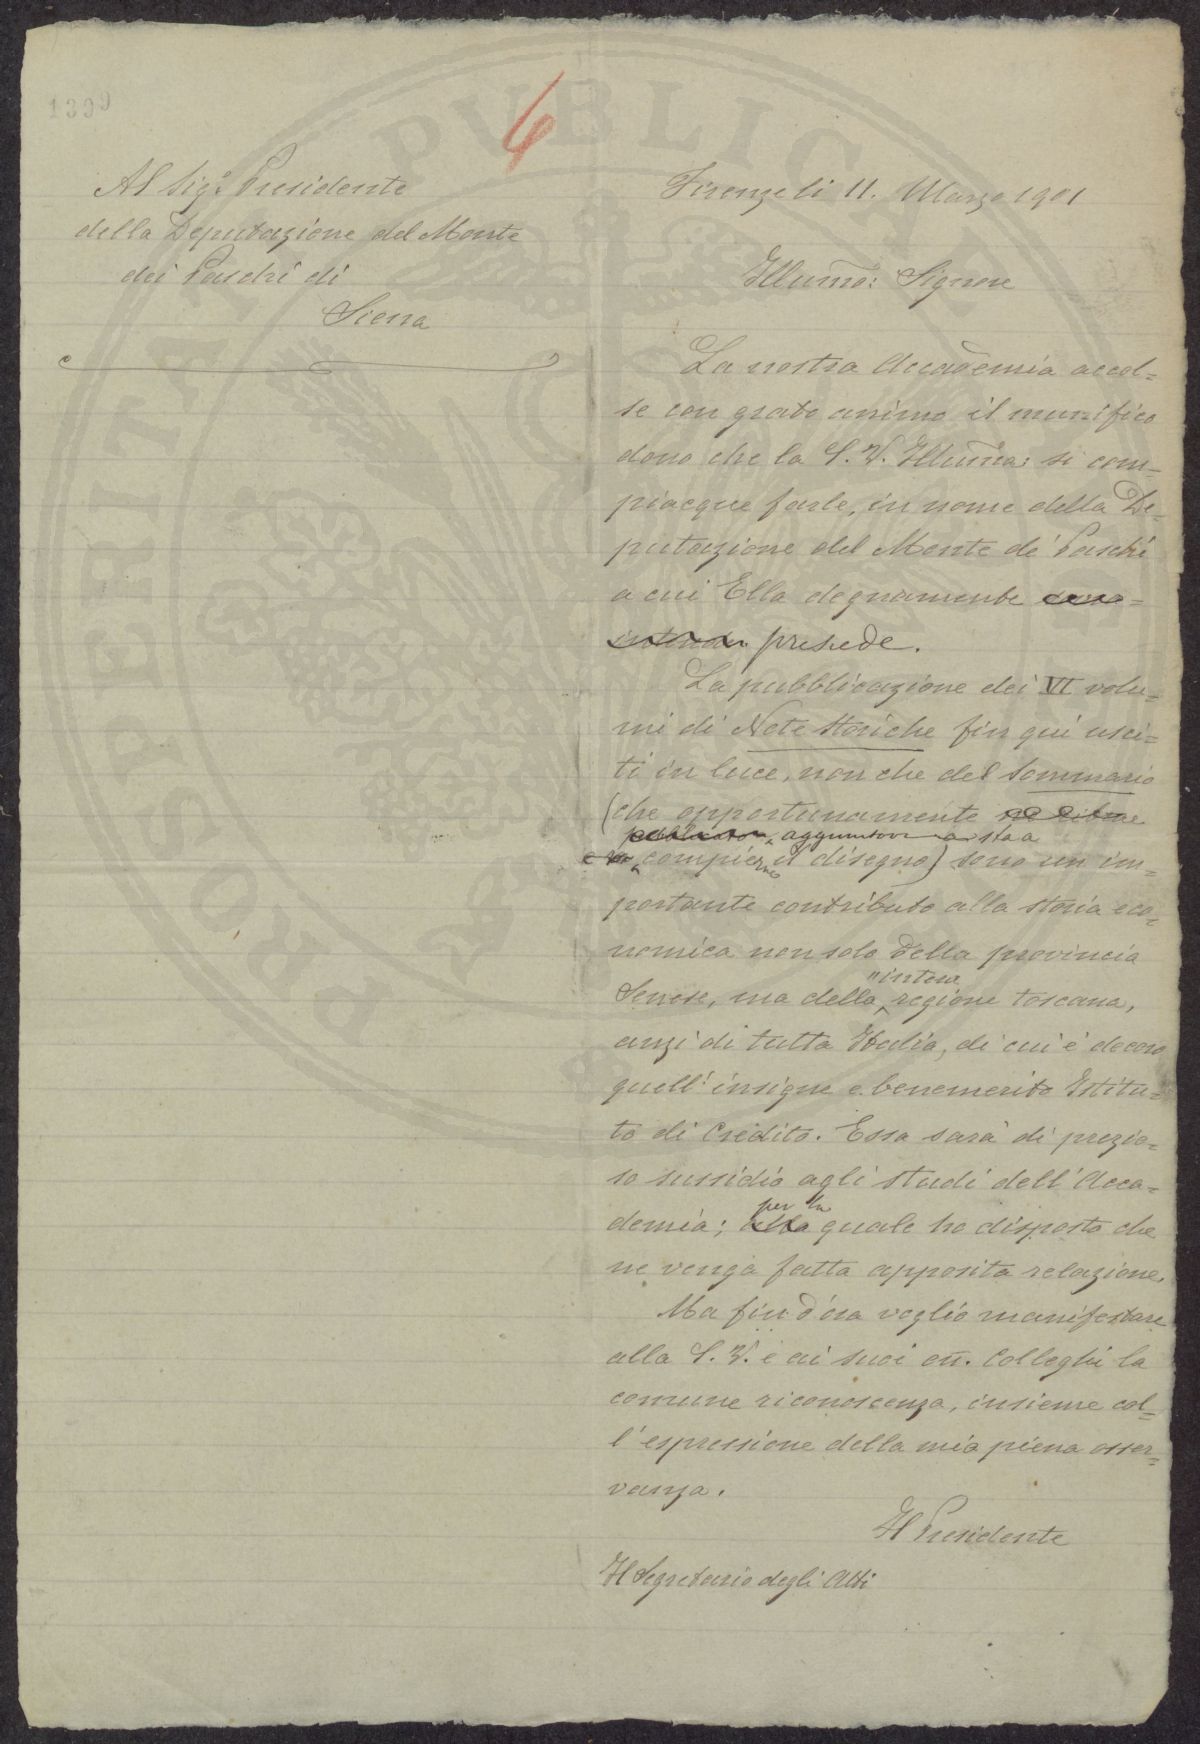 1399
6
Al Sigr. Presidente
della Deputazione del Monte
dei Paschi di
Siena
Firenze li 11. Marzo 1901
Illumo: Signore
La nostra Accademia accol=
se con grato animo il munifico
dono che la S. V. Illuma: si com=
piacque farle, in nome della De=
putazione del Monte de' Paschi
a cui Ella degnamente
presiede.
La pubblicazione dei VI volu=
mi di Note storiche fin qui usci=
ti in luce, non che del Sommario
(che opportunamente
aggiuntovi sta a
compier ne il disegno) sono un im=
portante contributo alla storia eco=
nomica non solo della provincia
Senese, ma della intera regione toscana,
anzi di tutta Italia, di cui è decoro
quell' insigne e benemerito Istitu=
to di Credito. Essa sarà di prezio=
so sussidio agli studi dell' Acca=
demia; per la
alla quale ho disposto che
ne venga fatta apposita relazione.
Ma fin d'ora voglio manifestare
alla S. V. e ai suoi on. Colleghi la
comune riconoscenza, insieme col=
l' espressione della mia piena osser=
vanza.
Il Presidente
Il Segretario degli Atti